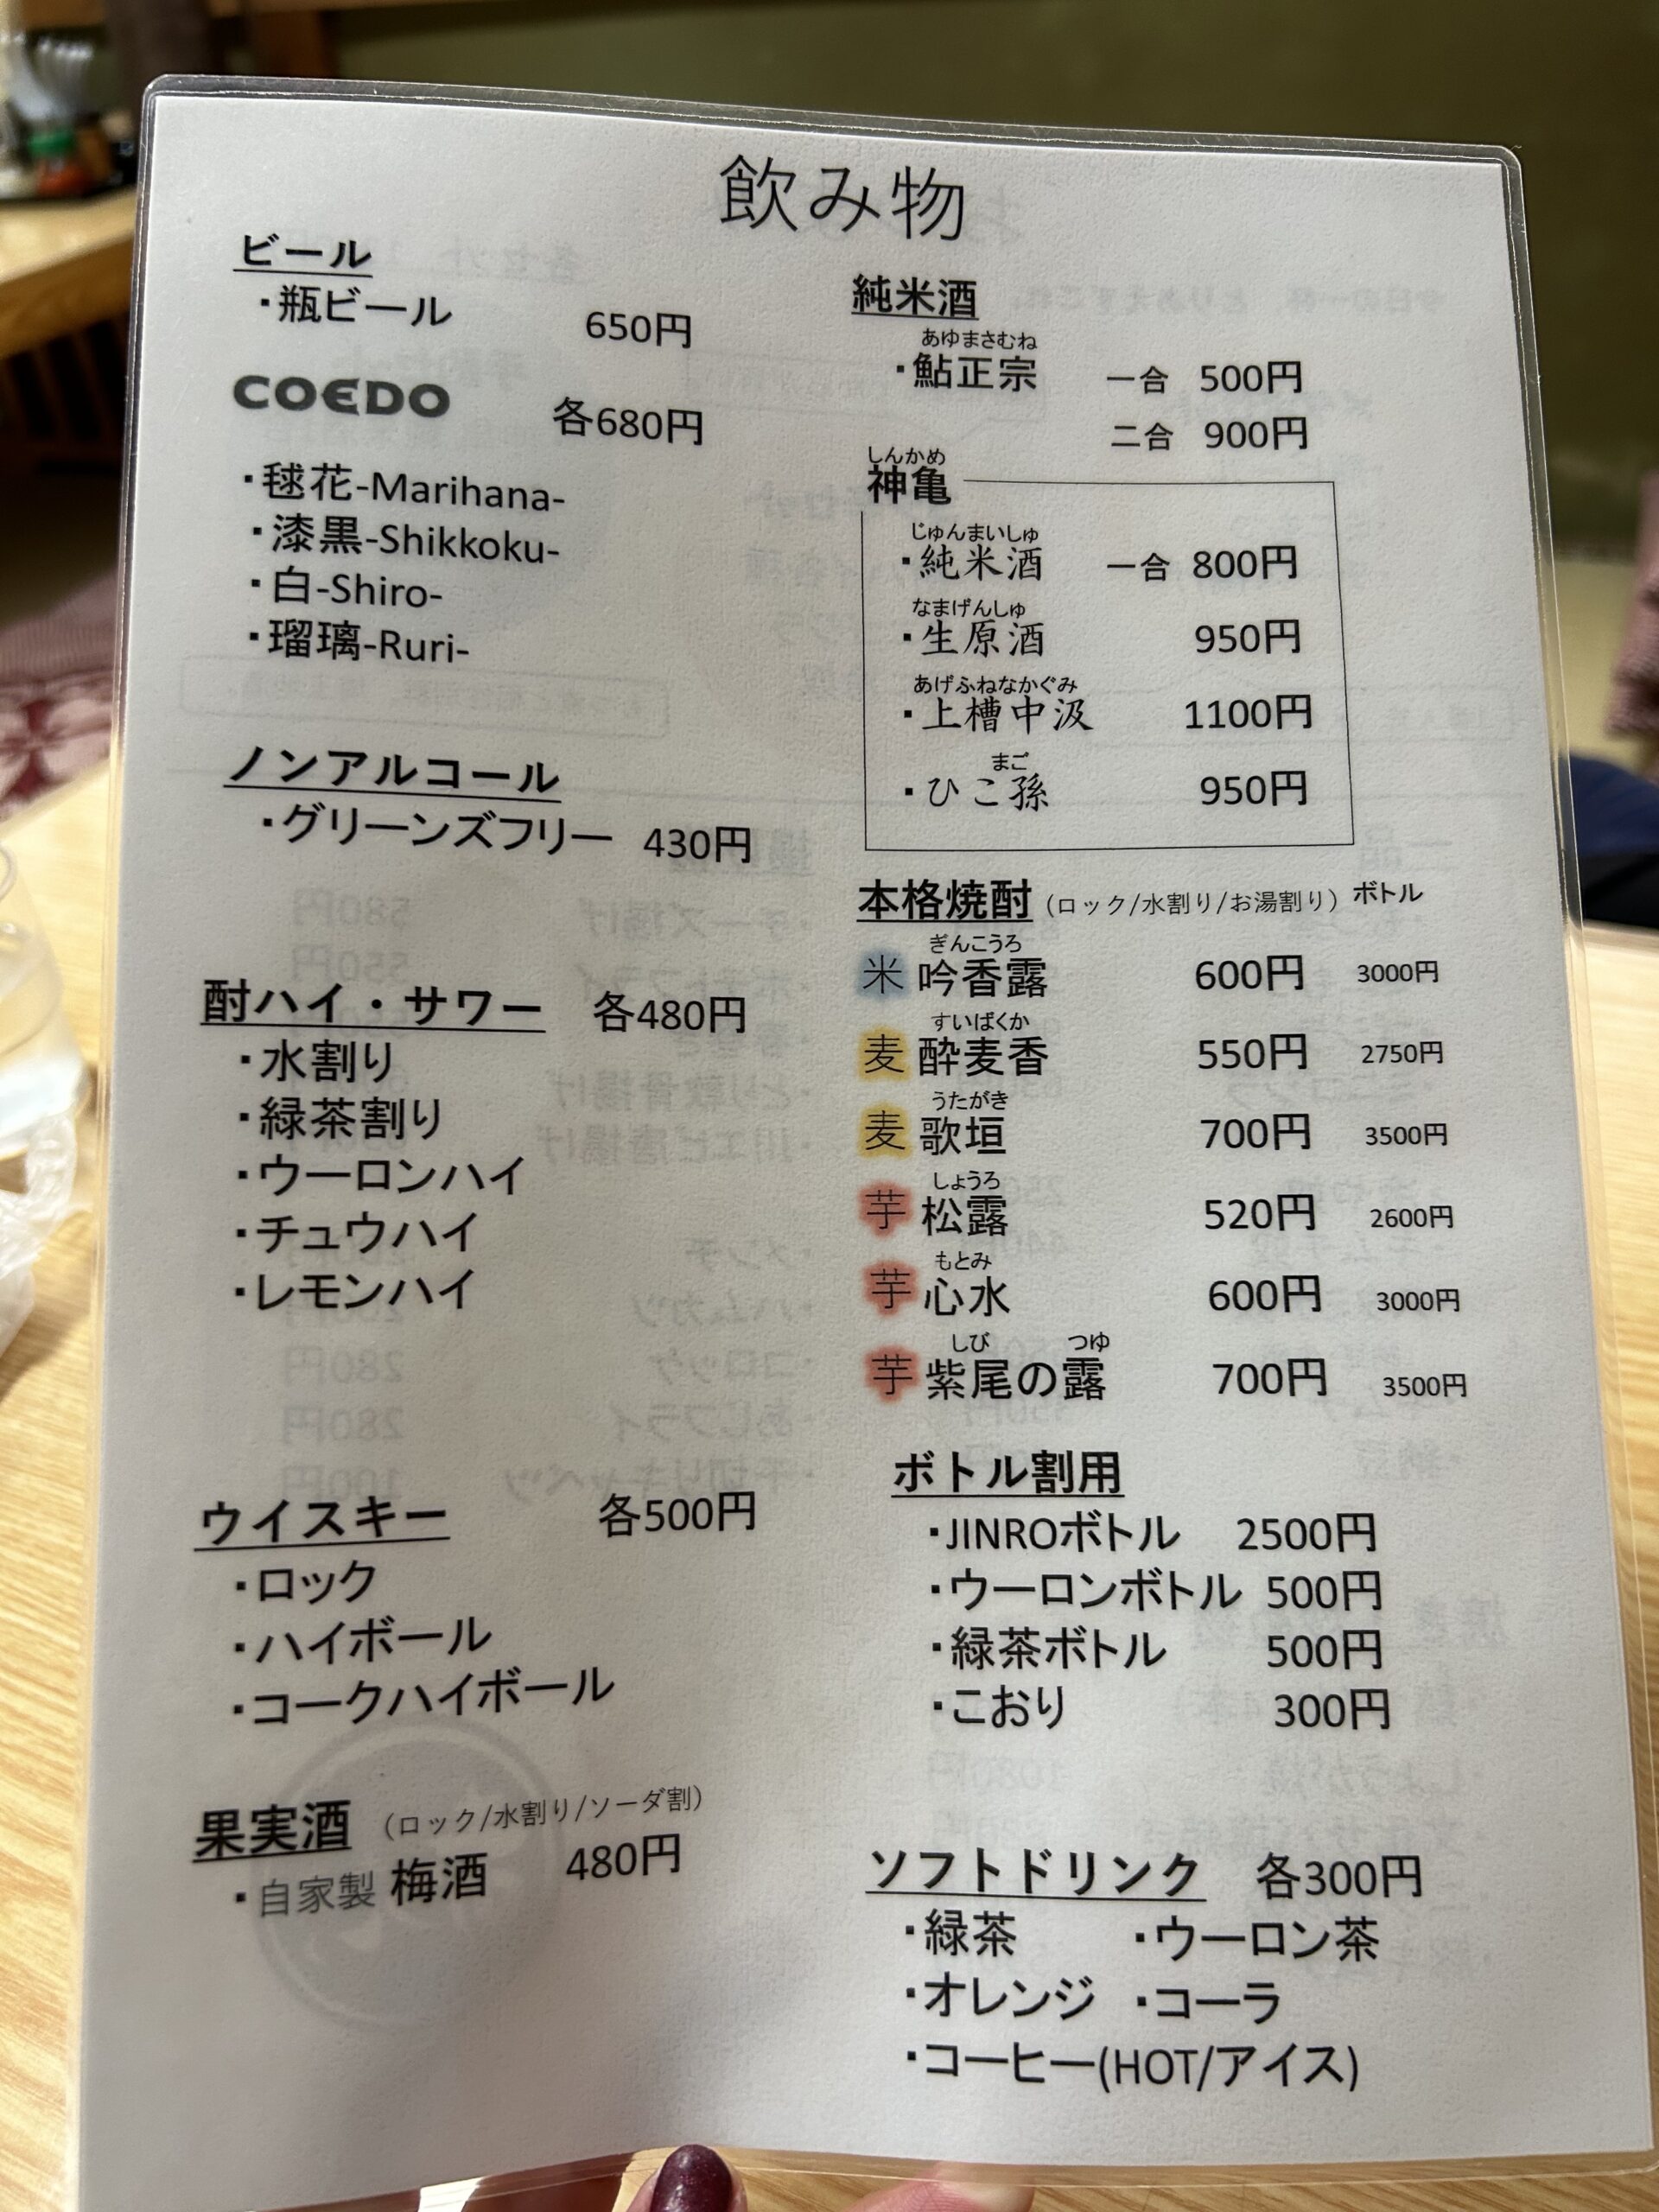 飲み物
ビール
・瓶ビール 650円
COEDO 各680円
・毬花-Marihana-
・漆黒-Shikkoku-
・白-Shiro-
・瑠璃-Ruri-
ノンアルコール
・グリーンズフリー 430円
酎ハイ・サワー 各480円
・水割り
・緑茶割り
・ウーロンハイ
・チュウハイ
・レモンハイ
ウイスキー 各500円
・ロック
・ハイボール
・コークハイボール
果実酒 (ロック/水割り/ソーダ割)
・自家製 梅酒 480円
純米酒
あゆまさむね
・鮎正宗 一合 500円
二合 900円
しんかめ
神亀
じゅんまいしゅ
・純米酒 一合 800円
なまげんしゅ
・生原酒 950円
あげふねなかぐみ
・上槽中汲 1100円
まご
・ひこ孫 950円
本格焼酎 (ロック/水割り/お湯割り) ボトル
ぎんこうろ
米 吟香露 600円 3000円
すいばくか
麦 酔麦香 550円 2750円
うたがき
麦 歌垣 700円 3500円
しょうろ
芋 松露 520円 2600円
もとみ
芋 心水 600円 3000円
しび つゆ
芋 紫尾の露 700円 3500円
ボトル割用
・JINROボトル 2500円
・ウーロンボトル 500円
・緑茶ボトル 500円
・こおり 300円
ソフトドリンク 各300円
・緑茶 ・ウーロン茶
・オレンジ ・コーラ
・コーヒー(HOT/アイス)